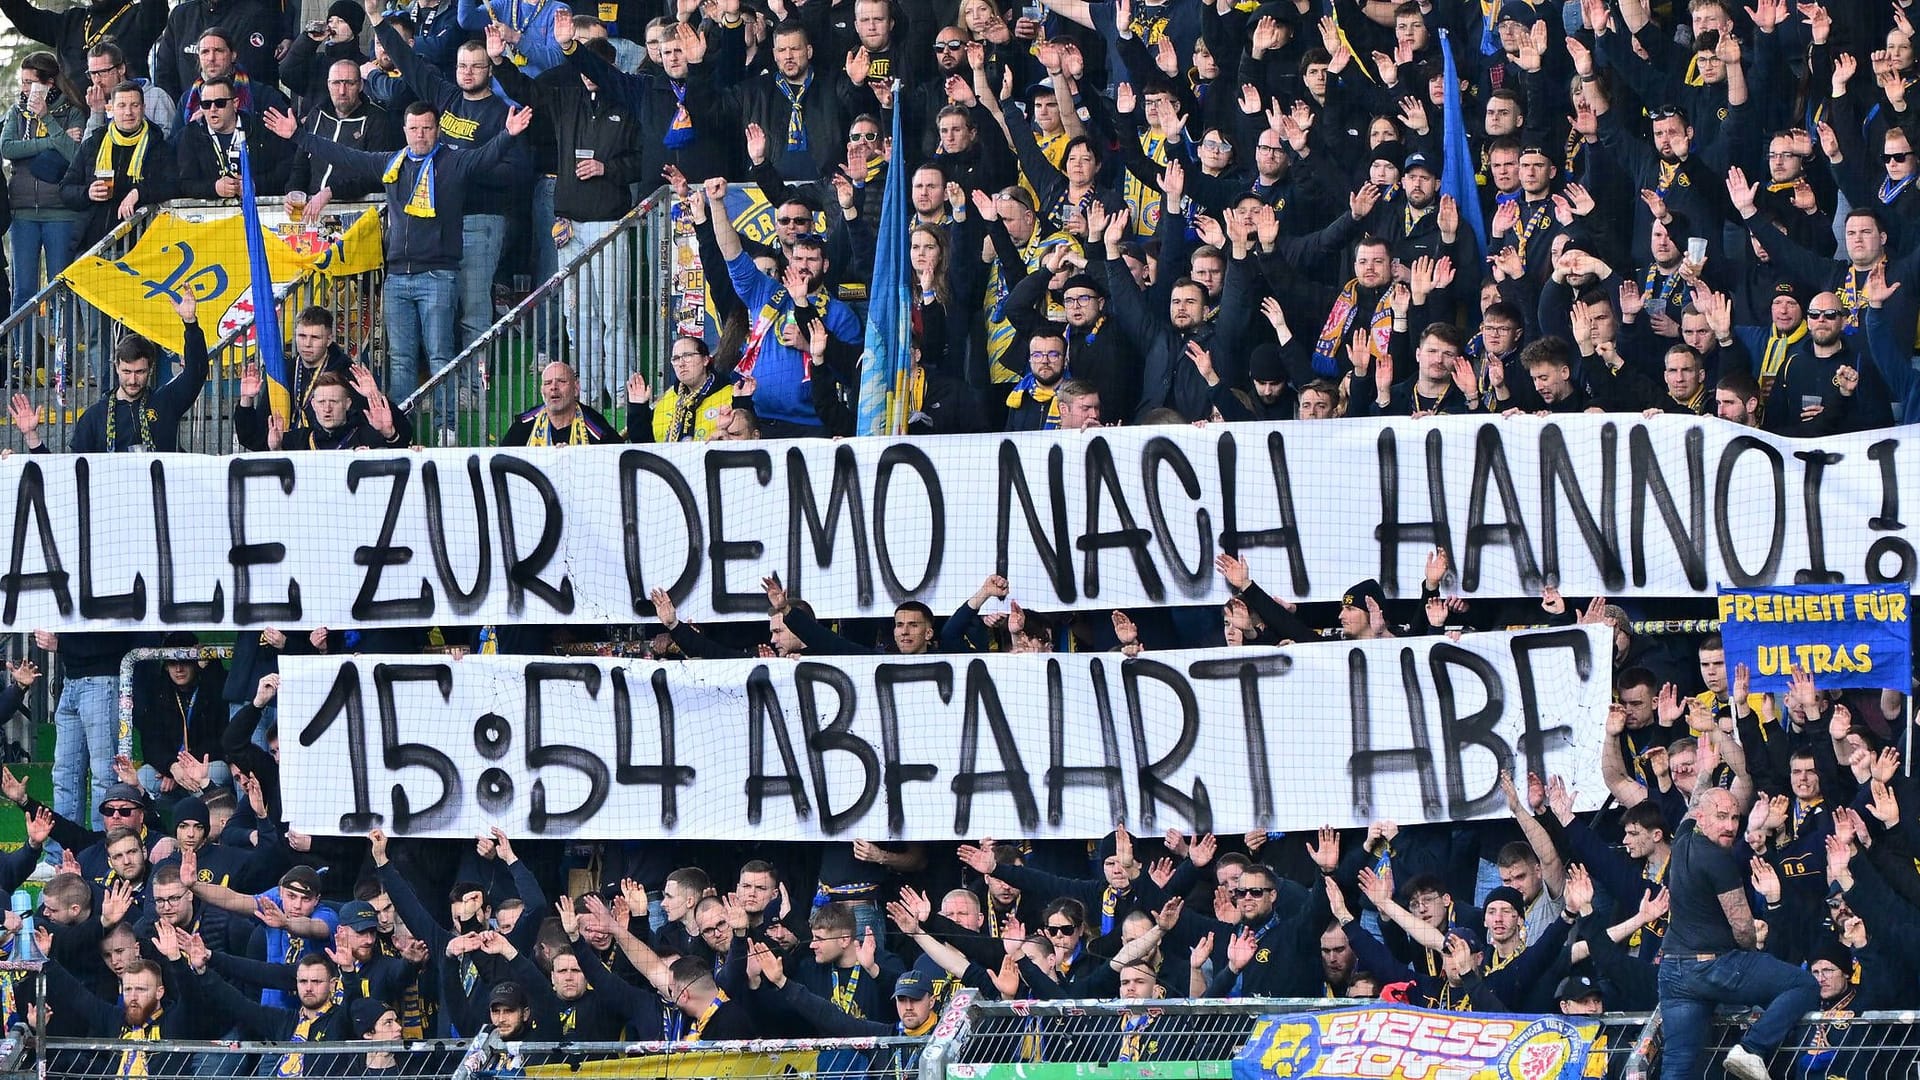 ALLE ZUR DEMO NACH HANNOI!
15:54 ABFAHRT HBF
FREIHEIT FÜR
ULTRAS
EXZESS
BOYS